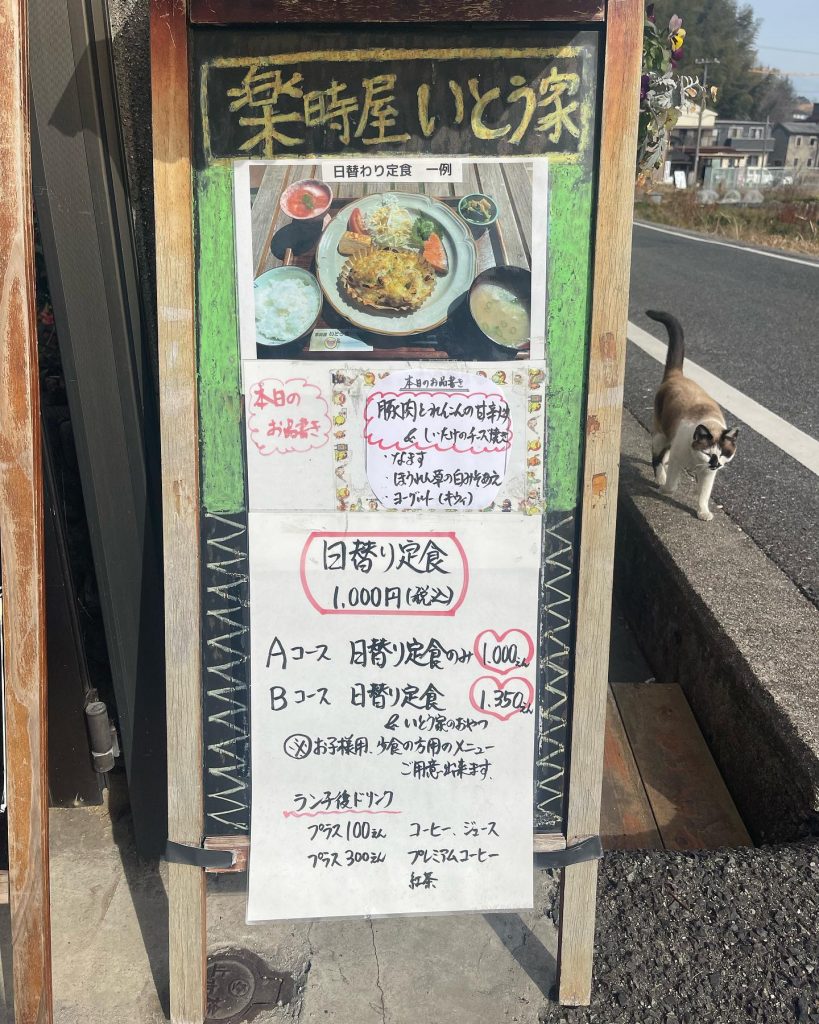 楽時屋 いとう家
日替わり定食 一例
本日の
お品書き
本日のお品書き
豚肉とれんこんの甘辛炒め
& しいたけのチーズ焼き
・なます
・ほうれん草の白みそあえ
・ヨーグルト(キウィ)
日替り定食
1,000円(税込)
Aコース 日替り定食のみ 1.000えん
Bコース 日替り定食 1.350えん
& いとう家のおやつ
㊟お子様用、少食の方用のメニュー
ご用意出来ます.
ランチ後ドリンク
プラス100えん コーヒー、ジュース
プラス300えん プレミアムコーヒー
紅茶